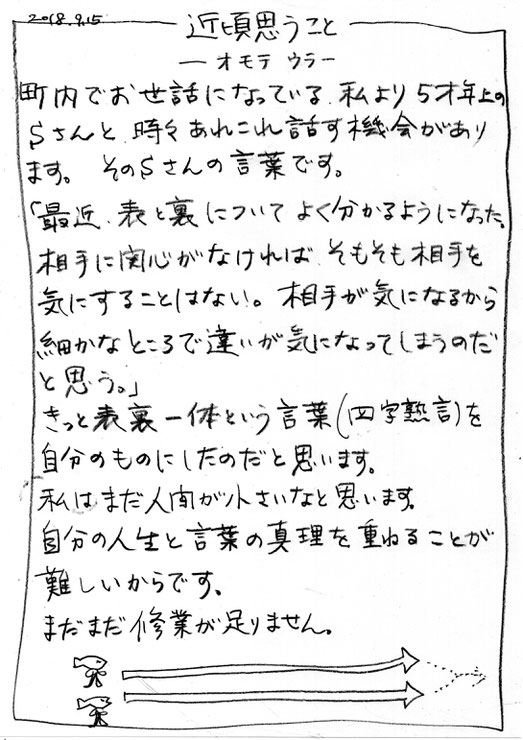 2018.9.15
近頃思うこと
― オモテ ウラ ―
町内でお世話になっている、私より5才年上の
Sさんと、時々あれこれ話す機会があり
ます。 そのSさんの言葉です。
「最近、表と裏について よく分かるようになった。
相手に関心がなければ、そもそも相手を
気にすることはない。相手が気になるから
細かなところで違いが気になってしまうのだ
と思う。」
きっと表裏一体という言葉(四字熟言)を
自分のものにしたのだと思います。
私はまだ人間が小さいなと思います。
自分の人生と言葉の真理を重ねることが
難しいからです。
まだまだ修業が足りません。